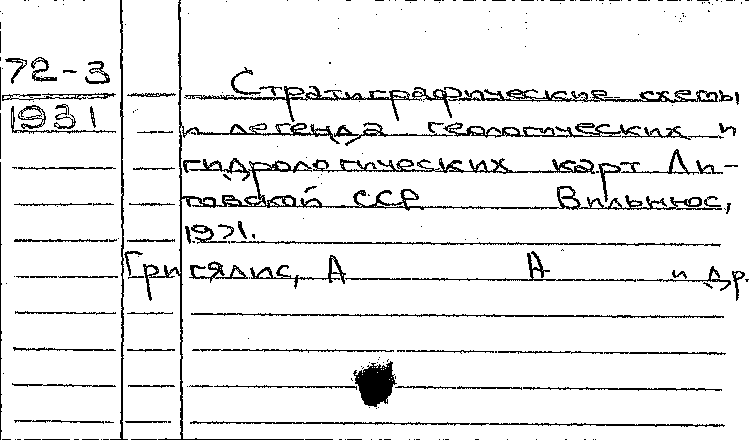 72-3
1931
Стратиграфические схемы
и легенда геологических и
гидрологических карт Ли-
товской ССР Вильнюс,
1971.
Григялис, А А и др.